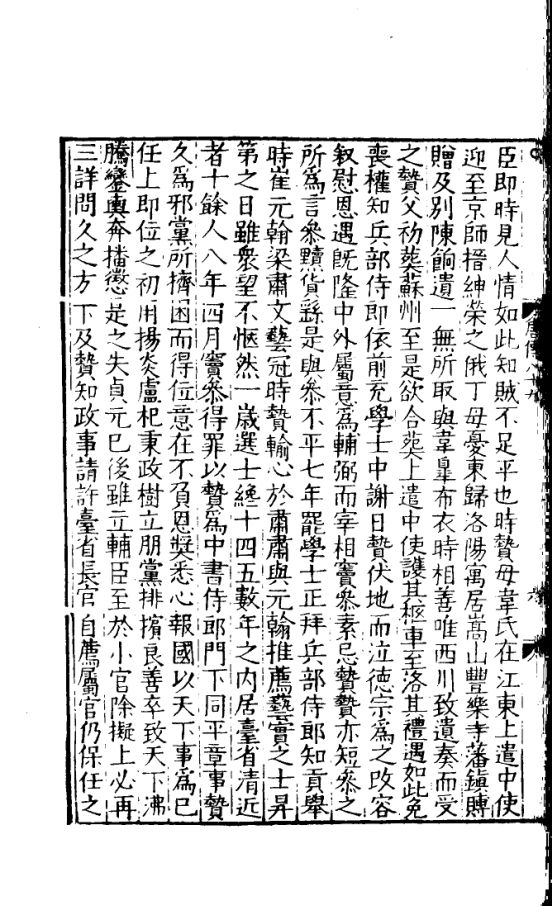 臣即時見人情如此知賊不足平也時贄母韋氏在江東上遣中使
迎至京師搢紳榮之俄丁母憂東歸洛陽寓居嵩山豐樂寺藩鎮賻
贈及別陳餉遺一無所取與韋臯布衣時相善唯西川致遺奏而受
之贄父初葬蘇州至是欲合葬上遣中使護其柩車至洛其禮遇如此免
喪權知兵部侍郎依前充學士中謝日贄伏地而泣德宗為之改容
叙慰恩遇旣隆中外屬意為輔弼而宰相竇參素忌贄贄亦短參之
所為言參黷貨繇是與參不平七年罷學士正拜兵部侍郎知貢舉
時崔元翰梁肅文藝冠時贄輸心於肅肅與元翰推薦藝實之士昇
第之日雖衆望不愜然一歲選士纔十四五數年之內居臺省清近
者十餘人八年四月竇參得罪以贄為中書侍郎門下同平章事贄
久為邪黨所擠困而得位意在不負恩獎悉心報國以天下事為己
任上即位之初用楊炎盧杞秉政樹立朋黨排擯良善卒致天下沸
騰鑾輿奔播懲是之失貞元已後雖立輔臣至於小官除擬上必再
三詳問久之方下及贄知政事請許臺省長官自薦屬官仍保任之